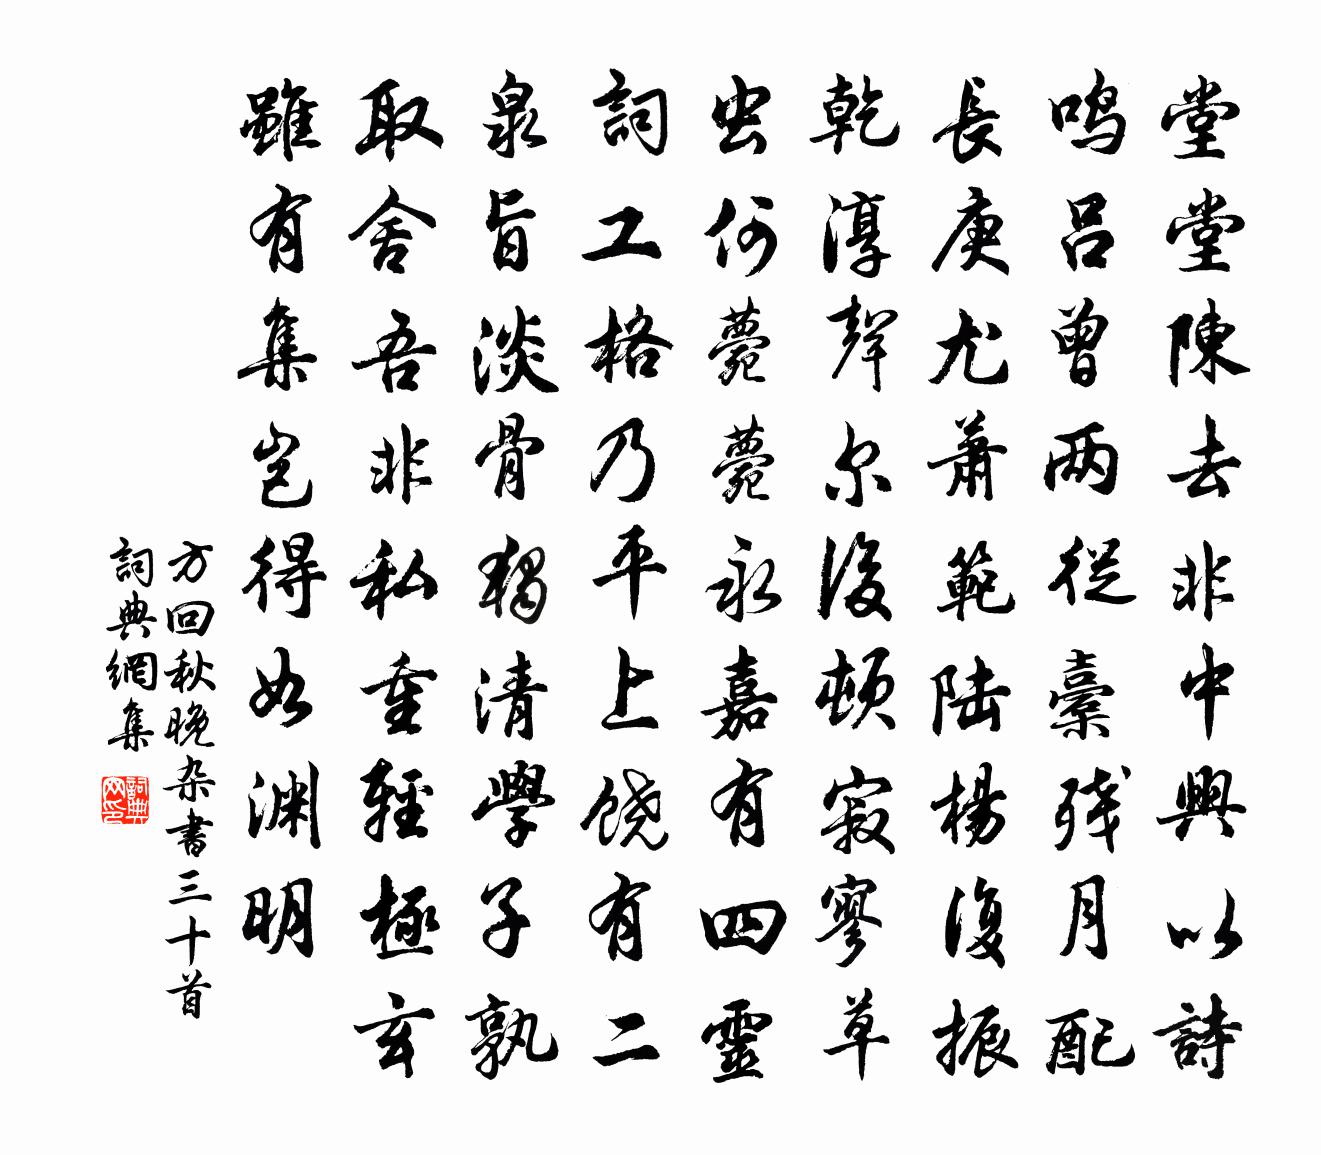 堂堂陳去非中興以詩
鸣吕曾两從橐残月配
長庚尤蕭範陆楊復振
乾淳聲尔後頓寂寥草
虫何薨薨永嘉有四靈
詞工格乃平上饶有二
泉旨淡骨獨清學子孰
取舍吾非私重輕極玄
雖有集岂得如渊明
方回秋晚杂書三十首
詞典網集
詞典网印